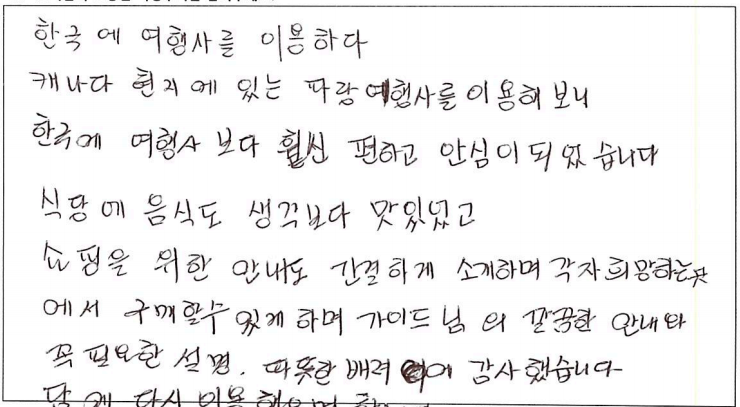 한국에 여행사를 이용하다
캐나다 현지에 있는 파랑여행사를 이용해 보니
한국에 여행사 보다 훨씬 편하고 안심이 되었습니다
식당에 음식도 생각보다 맛있었고
쇼핑을 위한 안내도 간결하게 소개하며 각자 희망하는곳
에서 구매할수 있게 하며 가이드님의 깔끔한 안내와
꼭 필요한 설명. 따뜻한 배려에 감사했습니다
담에 다시 이용했으면